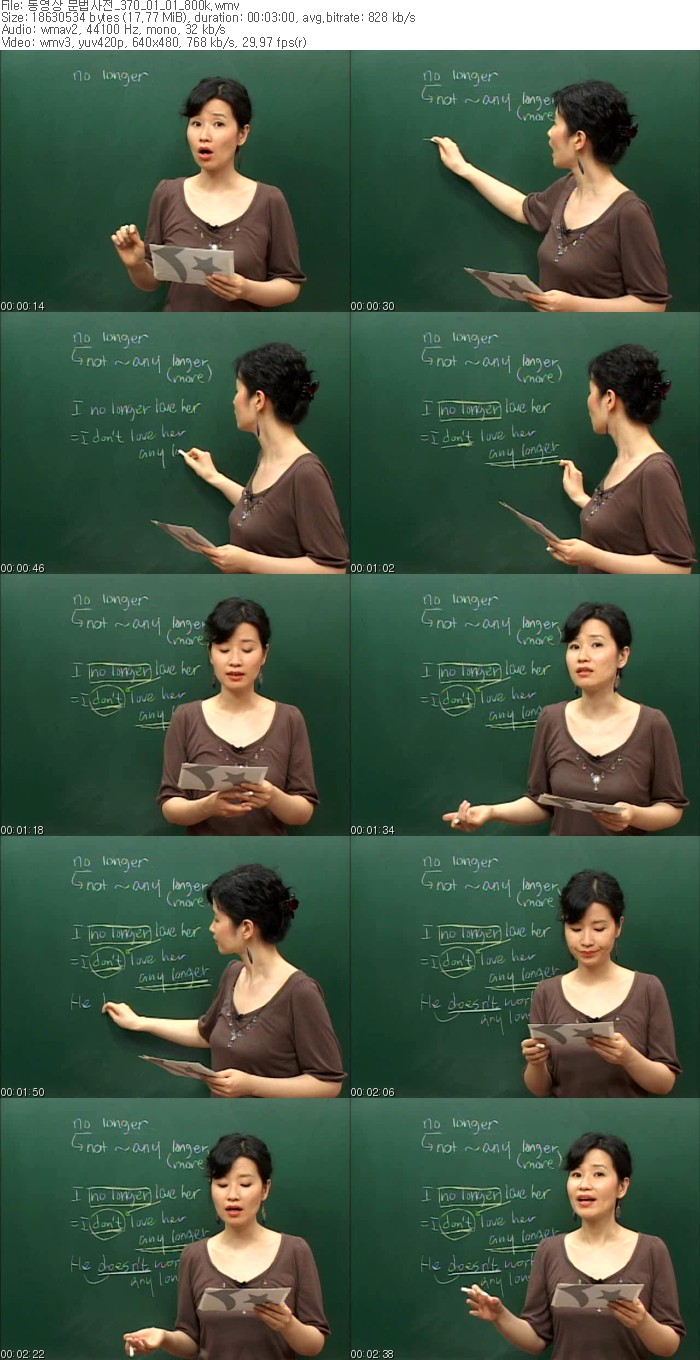 File: 동영상 문법사전_370_01_01_800k.wmv
Size: 18630534 bytes (17.77 MiB), duration: 00:03:00, avg.bitrate: 828 kb/s
Audio: wmav2, 44100 Hz, mono, 32 kb/s
Video: wmv3, yuv420p, 640x480, 768 kb/s, 29.97 fps(r)
no longer
00:00:14
no longer
↳not ~ any longer
(more
00:00:30
no longer
↳not ~ any longer
(more)
I no longer love her
=I don't love her
any l
00:00:46
no longer
↳not ~ any longer
(more)
I no longer love her
=I don't love her
any longer
00:01:02
no longer
↳not ~ any longer
(more
I no longer love her
=I don't love her
any long
00:01:18
no longer
↳not ~ any longe
(more
I no longer love her
=I don't love her
any long
00:01:34
no longer
↳not ~ any longer
(more
I no longer love her
=I don't love her
any longer
He
00:01:50
no longer
↳not ~ any longer
(more
I no longer love her
=I don't love her
any longer
He doesn't work
any lon
00:02:06
no longer
↳not ~ any longer
(more
I no longer love her
=I don't love her
any longer
He doesn't work
any lon
00:02:22
no longer
↳not ~ any longer
(more)
I no longer love her
=I don't love her
any longer
He doesn't wor
any lon
00:02:38